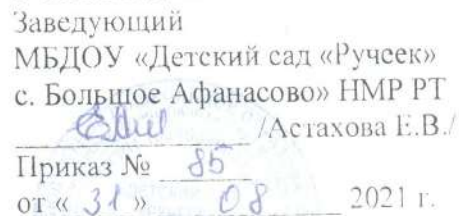 Заведующий
МБДОУ «Детский сад «Ручеек»
с. Большое Афанасово» НМР РТ
/Астахова Е.В./
Приказ № 85
от « 31 » 08 2021 г.